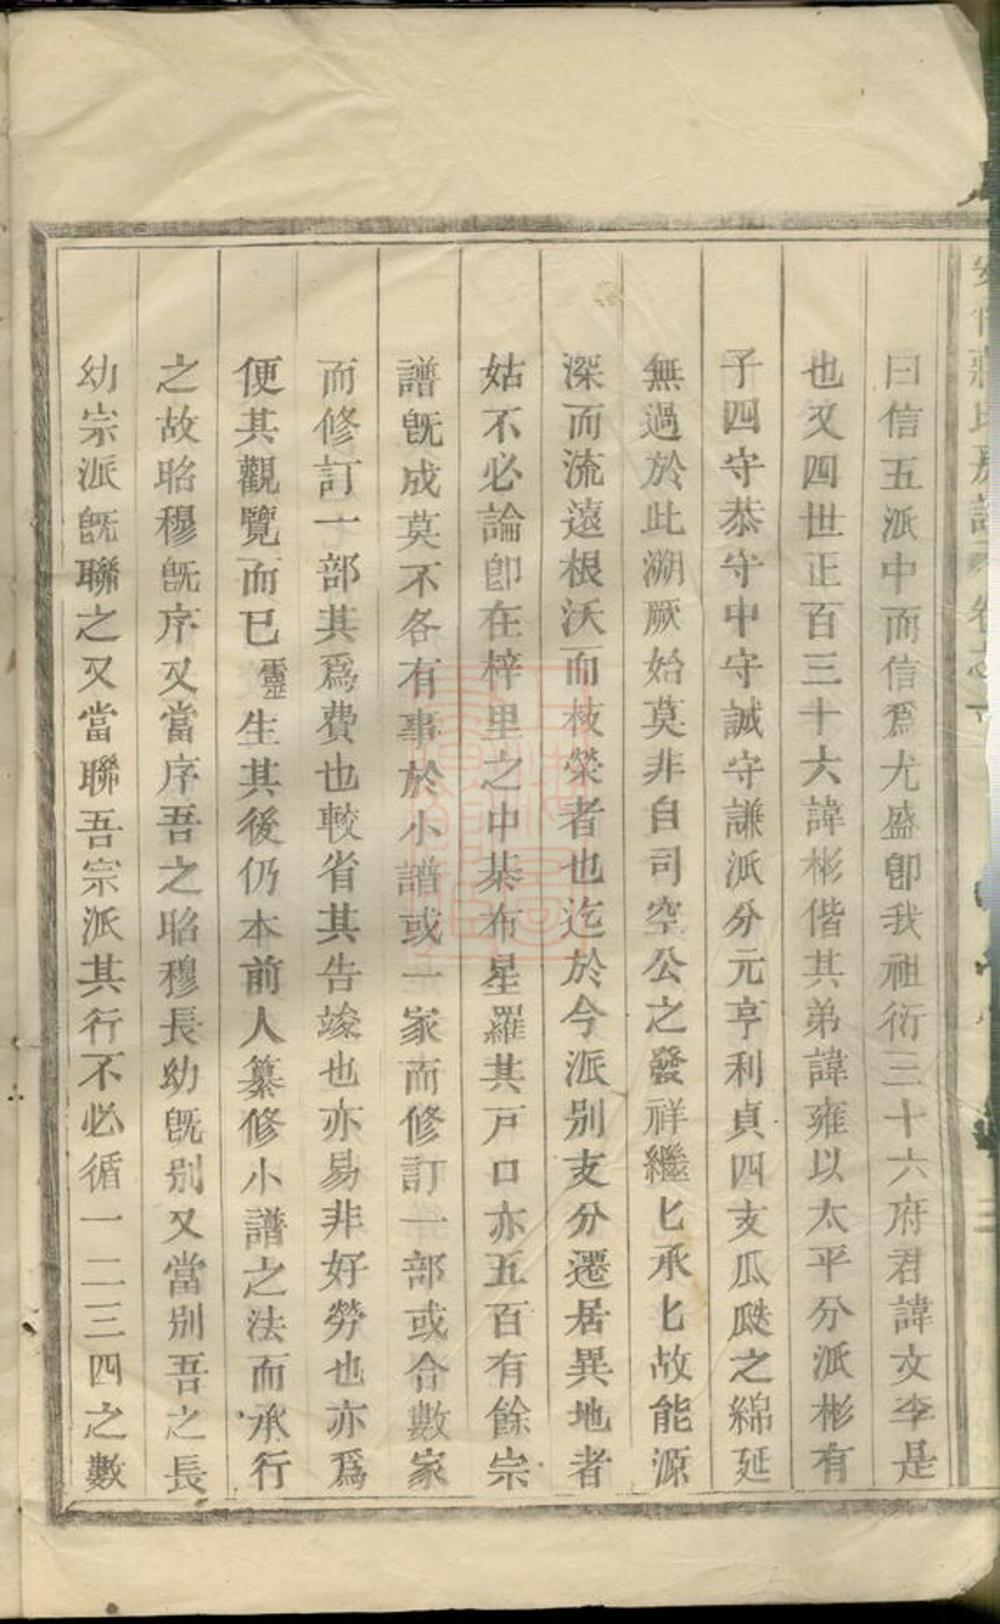 曰信五派中而信爲尤盛卽我祖衍三十六府君諱文李是
也又四世正百三十六諱彬偕其弟諱雍以太平分派彬有
子四守恭守中守誠守謙派分元亨利貞四支瓜瓞之綿延
無過於此溯厥始莫非自司空公之發祥繼匕承匕故能源
深而流遠根沃而枝榮者也迄於今派別支分遷居異地者
姑不必論卽在梓里之中棊布星羅其戸口亦五百有餘宗
譜旣成莫不各有事於小譜或一家而修訂一部或合數家
而修訂一部其爲費也較省其告竣也亦易非好勞也亦爲
便其觀覽而已靈生其後仍本前人纂修小譜之法而承行
之故昭穆旣序又當序吾之昭穆長幼旣別又當別吾之長
幼宗派旣聯之又當聯吾宗派其行不必循一二三四之數